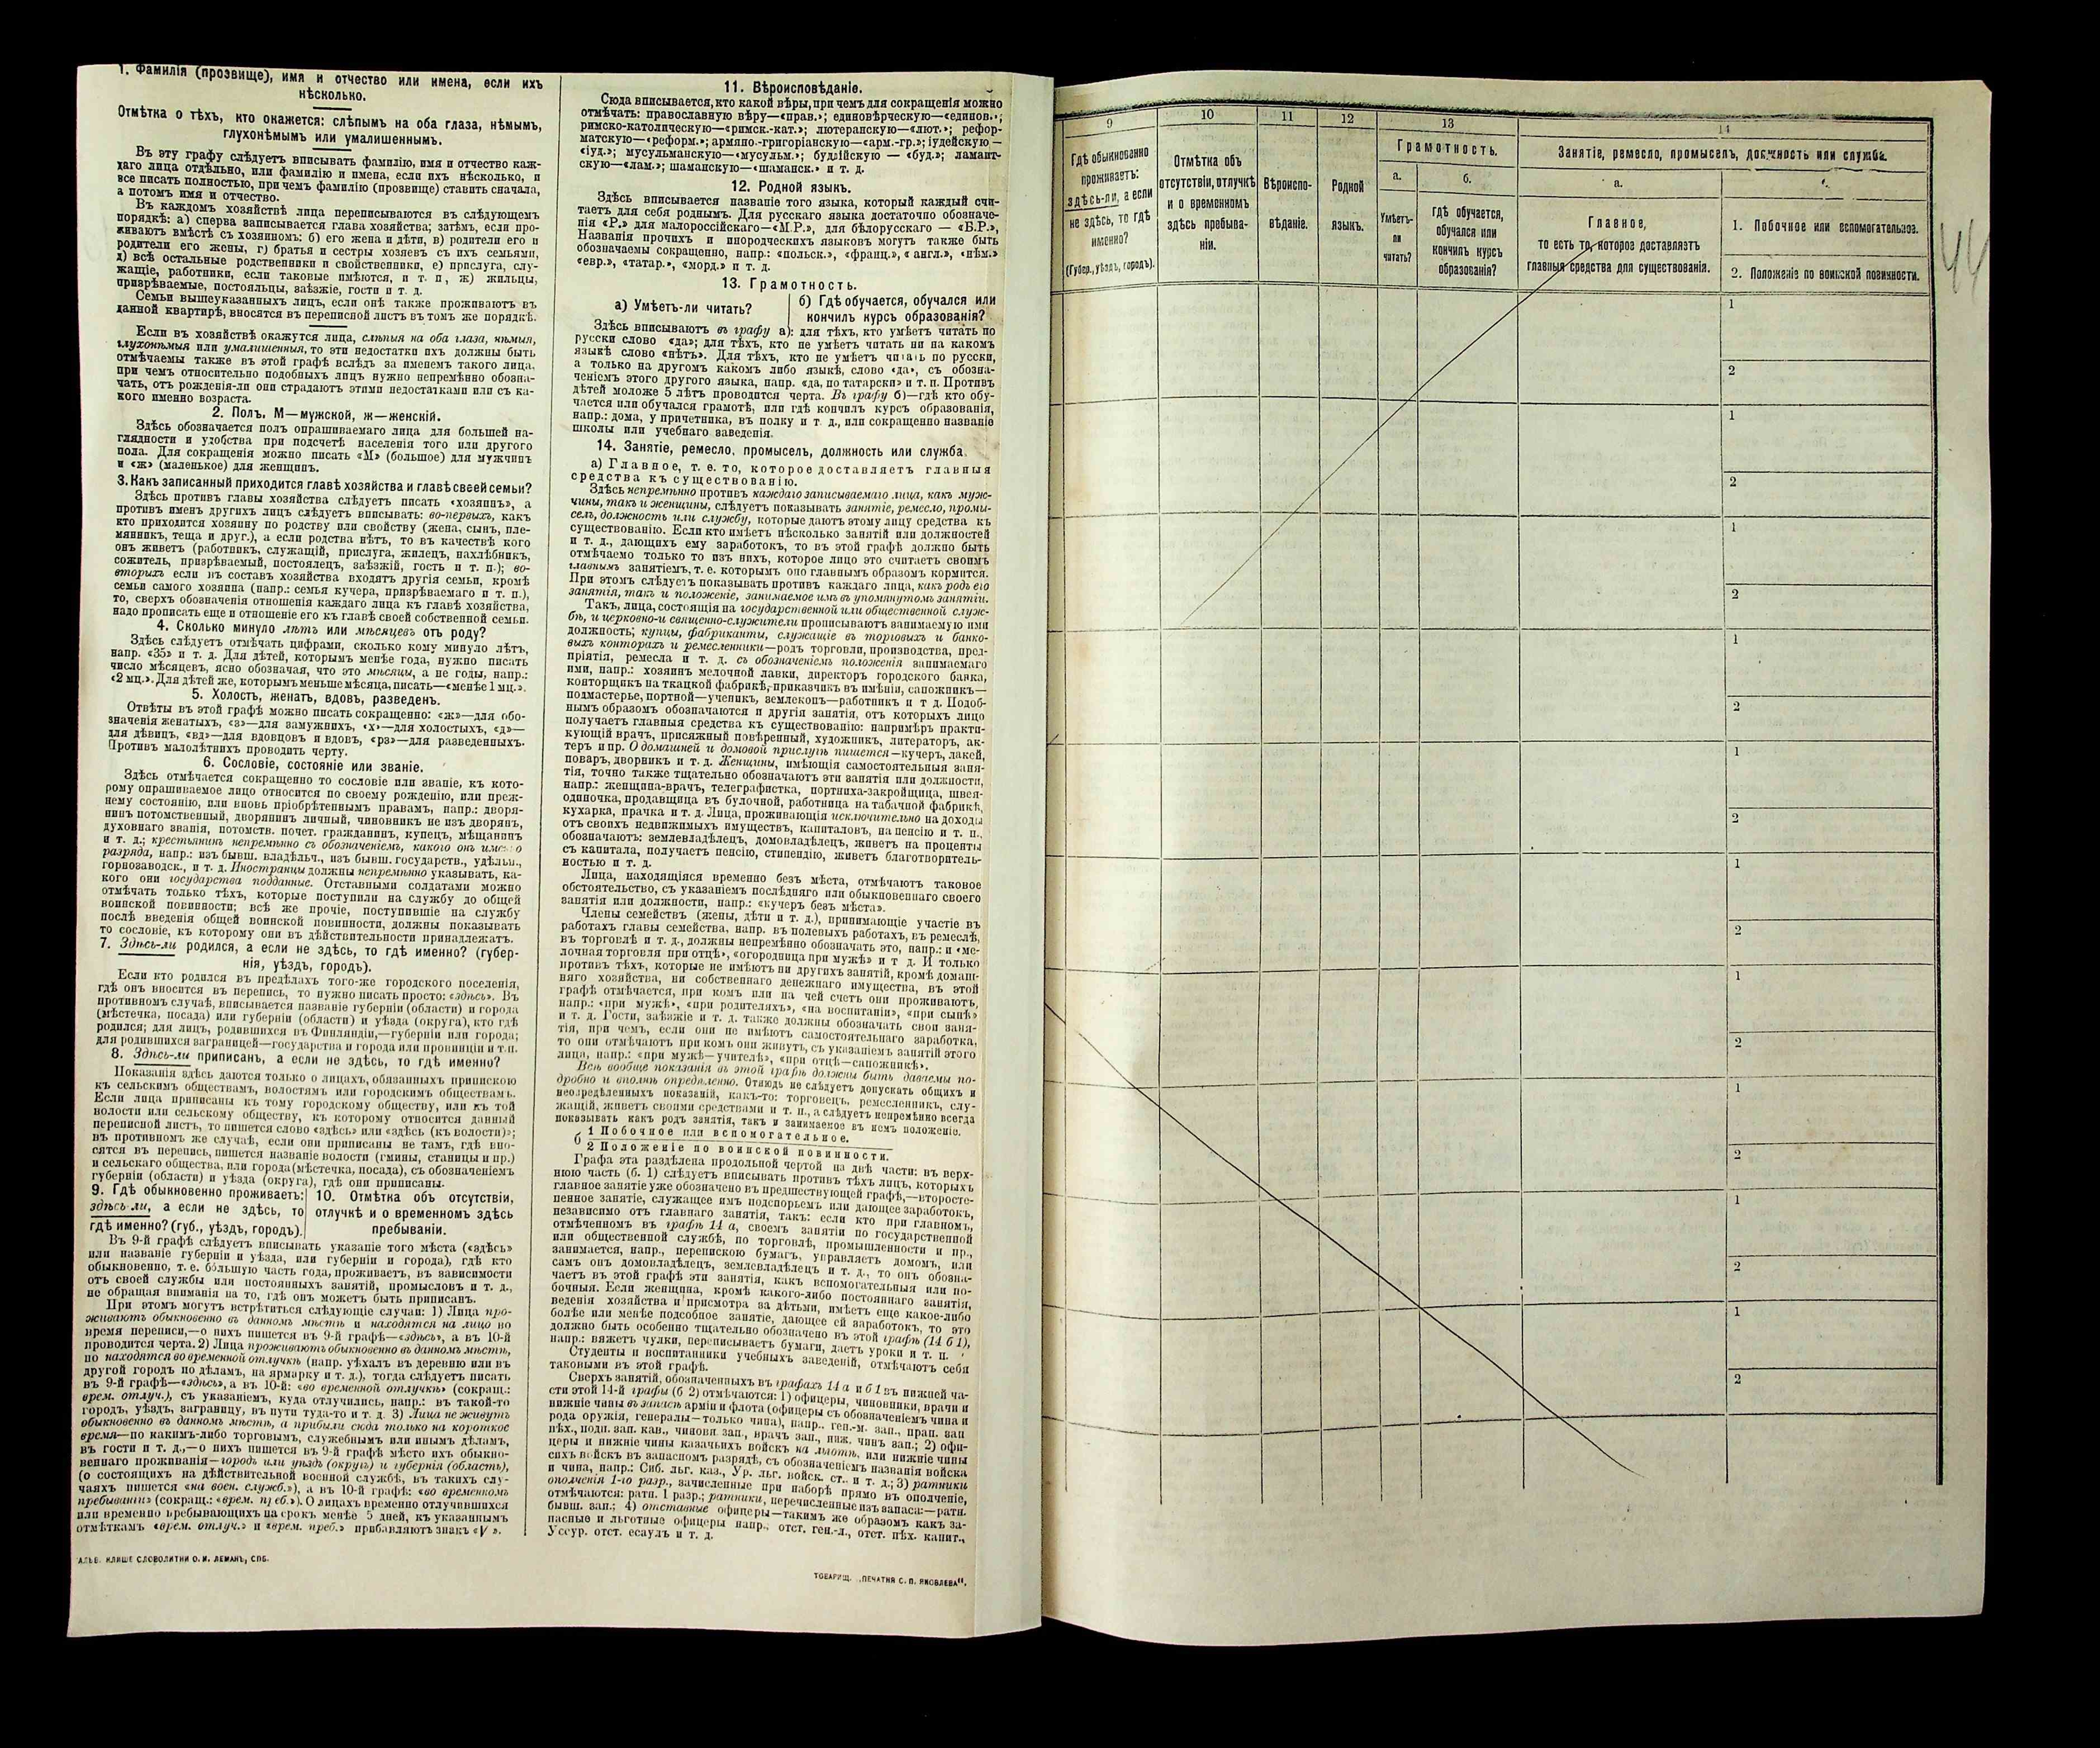 1. Фамилія (прозвище), имя и отчество или имена, если ихъ
нѣсколько.
Отмѣтка о тѣхъ, кто окажется: слѣпымъ на оба глаза, нѣмымъ,
глухонѣмымъ или умалишеннымъ.
Въ эту графу слѣдуетъ вписывать фамилію, имя и отчество каж-
даго лица отдѣльно, или фамилію и имена, если ихъ нѣсколько, и
все писать полностью, при чемъ фамилію (прозвище) ставить сначала,
а потомъ имя и отчество.
Въ каждомъ хозяйствѣ лица переписываются въ слѣдующемъ
порядкѣ: а) сперва записывается глава хозяйства; затѣмъ, если про-
живаютъ вмѣстѣ съ хозяиномъ: б) его жена и дѣти, в) родители его и
родители его жены, г) братья и сестры хозяевъ съ ихъ семьями,
д) всѣ остальные родственники и свойственники, е) прислуга, слу-
жащіе, работники, если таковые имѣются, и т. п., ж) жильцы,
призрѣваемые, постояльцы, заѣзжіе, гости и т. д.
Семьи вышеуказанныхъ лицъ, если онѣ также проживаютъ въ
данной квартирѣ, вносятся въ переписной листъ въ томъ же порядкѣ.
Если въ хозяйствѣ окажутся лица, слѣпыя на оба глаза, нѣмыя,
глухонѣмыя или умалишенныя, то эти недостатки ихъ должны быть
отмѣчаемы также въ этой графѣ вслѣдъ за именемъ такого лица,
при чемъ относительно подобныхъ лицъ нужно непремѣнно обозна-
чать, отъ рожденія-ли они страдаютъ этими недостатками или съ ка-
кого именно возраста.
2. Полъ, М—мужской, ж—женскій.
Здѣсь обозначается полъ опрашиваемаго лица для большей на-
глядности и удобства при подсчетѣ населенія того или другого
пола. Для сокращенія можно писать «М» (большое) для мужчинъ
и «ж» (маленькое) для женщинъ.
3. Какъ записанный приходится главѣ хозяйства и главѣ своей семьи?
Здѣсь противъ главы хозяйства слѣдуетъ писать «хозяинъ», а
противъ именъ другихъ лицъ слѣдуетъ вписывать: во-первыхъ, какъ
кто приходится хозяину по родству или свойству (жена, сынъ, пле-
мянникъ, теща и друг.), а если родства нѣтъ, то въ качествѣ кого
онъ живетъ (работникъ, служащій, прислуга, жилецъ, нахлѣбникъ,
сожитель, призрѣваемый, постоялецъ, заѣзжій, гость и т. п.); во-
вторыхъ если въ составъ хозяйства входятъ другія семьи, кромѣ
семьи самого хозяина (напр.: семья кучера, призрѣваемаго и т. п.),
то, сверхъ обозначенія отношенія каждаго лица къ главѣ хозяйства,
надо прописать еще и отношеніе его къ главѣ своей собственной семьи.
4. Сколько минуло лѣтъ или мѣсяцевъ отъ роду?
Здѣсь слѣдуетъ отмѣчать цифрами, сколько кому минуло лѣтъ,
напр. «35» и т. д. Для дѣтей, которымъ менѣе года, нужно писать
число мѣсяцевъ, ясно обозначая, что это мѣсяцы, а не годы, напр.:
«2 мц.». Для дѣтей же, которымъ меньше мѣсяца, писать—«менѣе 1 мц.».
5. Холостъ, женатъ, вдовъ, разведенъ.
Отвѣты въ этой графѣ можно писать сокращенно: «ж»—для обо-
значенія женатыхъ, «з»—для замужнихъ, «х»—для холостыхъ, «д»—
для дѣвицъ, «вд»—для вдовцовъ и вдовъ, «рз»—для разведенныхъ.
Противъ малолѣтнихъ проводить черту.
6. Сословіе, состояніе или званіе.
Здѣсь отмѣчается сокращенно то сословіе или званіе, къ кото-
рому опрашиваемое лицо относится по своему рожденію, или преж-
нему состоянію, или вновь пріобрѣтеннымъ правамъ, напр.: дворя-
нинъ потомственный, дворянинъ личный, чиновникъ не изъ дворянъ,
духовнаго званія, потомств. почет. гражданинъ, купецъ, мѣщанинъ
и т. д.; крестьянинъ непремѣнно съ обозначеніемъ, какого онъ имен о
разряда, напр.: изъ бывш. владѣльч., изъ бывш. государств., удѣльн.,
горнозаводск., и т. д. Иностранцы должны непремѣнно указывать, ка-
кого они государства подданные. Отставными солдатами можно
отмѣчать только тѣхъ, которые поступили на службу до общей
воинской повинности; всѣ же прочіе, поступившіе на службу
послѣ введенія общей воинской повинности, должны показывать
то сословіе, къ которому они въ дѣйствительности принадлежатъ.
7. Здѣсь-ли родился, а если не здѣсь, то гдѣ именно? (губер-
нія, уѣздъ, городъ).
Если кто родился въ предѣлахъ того-же городского поселенія,
гдѣ онъ вносится въ перепись, то нужно писать просто: «здѣсь». Въ
противномъ случаѣ, вписывается названіе губерніи (области) и города
(мѣстечка, посада) или губерніи (области) и уѣзда (округа), кто гдѣ
родился; для лицъ, родившихся въ Финляндіи,—губерніи или города;
для родившихся заграницей—государства и города или провинціи и т. п.
8. Здѣсь-ли приписанъ, а если не здѣсь, то гдѣ именно?
Показанія здѣсь даются только о лицахъ, обязанныхъ припискою
къ сельскимъ обществамъ, волостямъ или городскимъ обществамъ.
Если лица приписаны къ тому городскому обществу, или къ той
волости или сельскому обществу, къ которому относится данный
переписной листъ, то пишется слово «здѣсь» или «здѣсь (къ волости)»;
въ противномъ же случаѣ, если они приписаны не тамъ, гдѣ вно-
сятся въ перепись, пишется названіе волости (гмины, станицы и пр.)
и сельскаго общества, или города (мѣстечка, посада), съ обозначеніемъ
губерніи (области) и уѣзда (округа), гдѣ они приписаны.
9. Гдѣ обыкновенно проживаетъ:
здѣсь-ли, а если не здѣсь, то
гдѣ именно? (губ., уѣздъ, городъ).
10. Отмѣтка объ отсутствіи,
отлучкѣ и о временномъ здѣсь
пребываніи.
Въ 9-й графѣ слѣдуетъ вписывать указаніе того мѣста («здѣсь»
или названіе губерніи и уѣзда, или губерніи и города), гдѣ кто
обыкновенно, т. е. большую часть года, проживаетъ, въ зависимости
отъ своей службы или постоянныхъ занятій, промысловъ и т. д.,
не обращая вниманія на то, гдѣ онъ можетъ быть приписанъ.
При этомъ могутъ встрѣтиться слѣдующіе случаи: 1) Лица про-
живаютъ обыкновенно въ данномъ мѣстѣ и находятся на лицо во
время переписи,—о нихъ пишется въ 9-й графѣ—«здѣсь», а въ 10-й
проводится черта. 2) Лица проживаютъ обыкновенно въ данномъ мѣстѣ,
но находятся во временной отлучкѣ (напр. уѣхалъ въ деревню или въ
другой городъ по дѣламъ, на ярмарку и т. д.), тогда слѣдуетъ писать
въ 9-й графѣ—«здѣсь», а въ 10-й: «во временной отлучкѣ» (сокращ.:
врем. отлуч.), съ указаніемъ, куда отлучились, напр.: въ такой-то
городъ, уѣздъ, заграницу, въ пути туда-то и т. д. 3) Лица не живутъ
обыкновенно въ данномъ мѣстѣ, а прибыли сюда только на короткое
время—по какимъ-либо торговымъ, служебнымъ или инымъ дѣламъ,
въ гости и т. д.,—о нихъ пишется въ 9-й графѣ мѣсто ихъ обыкно-
веннаго проживанія—городъ или уѣздъ (округъ) и губернія (область),
(о состоящихъ на дѣйствительной военной службѣ, въ такихъ слу-
чаяхъ пишется «на воен. служб.»), а въ 10-й графѣ: «во временномъ
пребываніи» (сокращ.: «врем. преб.»). О лицахъ временно отлучившихся
или временно пребывающихъ на срокъ менѣе 5 дней, къ указаннымъ
отмѣткамъ «врем. отлуч.» и «врем. преб.» прибавляютъ знакъ «V».
КЛИШЕ СЛОВОЛИТНИ О. И. ЛЕМАНЪ, СПБ.
11. Вѣроисповѣданіе.
Сюда вписывается, кто какой вѣры, при чемъ для сокращенія можно
отмѣчать: православную вѣру—«прав.»; единовѣрческую—«единов.»;
римско-католическую—«римск.-кат.»; лютеранскую—«лют.»; рефор-
матскую—«реформ.»; армяно.-григоріанскую—«арм.-гр.»; іудейскую—
«іуд.»; мусульманскую—«мусульм.»; буддійскую — «буд.»; ламаит-
скую—«лам.»; шаманскую—«шаманск.» и т. д.
12. Родной языкъ.
Здѣсь вписывается названіе того языка, который каждый счи-
таетъ для себя роднымъ. Для русскаго языка достаточно обозначе-
нія «Р.» для малороссійскаго—«М.Р.», для бѣлорусскаго — «Б.Р.»,
Названія прочихъ и инородческихъ языковъ могутъ также быть
обозначаемы сокращенно, напр.: «польск.», «франц.», «англ.», «нѣм.»
«евр.», «татар.», «морд.» и т. д.
13. Грамотность.
а) Умѣетъ-ли читать?
б) Гдѣ обучается, обучался или
кончилъ курсъ образованія?
Здѣсь вписываютъ въ графу а): для тѣхъ, кто умѣетъ читать по
русски слово «да»; для тѣхъ, кто не умѣетъ читать ни на какомъ
языкѣ слово «нѣтъ». Для тѣхъ, кто не умѣетъ читать по русски,
а только на другомъ какомъ либо языкѣ, слово «да», съ обозна-
ченіемъ этого другого языка, напр. «да, по татарски» и т. п. Противъ
дѣтей моложе 5 лѣтъ проводится черта. Въ графу б)—гдѣ кто обу-
чается или обучался грамотѣ, или гдѣ кончилъ курсъ образованія,
напр.: дома, у причетника, въ полку и т. д., или сокращенно названіе
школы или учебнаго заведенія.
14. Занятіе, ремесло, промыселъ, должность или служба.
а) Главное, т. е. то, которое доставляетъ главныя
средства къ существованію.
Здѣсь непремѣнно противъ каждаго записываемаго лица, какъ муж-
чины, такъ и женщины, слѣдуетъ показывать занятіе, ремесло, промы-
селъ, должность или службу, которые даютъ этому лицу средства къ
существованію. Если кто имѣетъ нѣсколько занятій или должностей
и т. д., дающихъ ему заработокъ, то въ этой графѣ должно быть
отмѣчаемо только то изъ нихъ, которое лицо это считаетъ своимъ
главнымъ занятіемъ, т. е. которымъ оно главнымъ образомъ кормится.
При этомъ слѣдуетъ показывать противъ каждаго лица, какъ родъ его
занятія, такъ и положеніе, занимаемое имъ въ упомянутомъ занятіи.
Такъ, лица, состоящія на государственной или общественной служ-
бѣ, и церковно-и священно-служители прописываютъ занимаемую ими
должность; купцы, фабриканты, служащіе въ торговыхъ и банко-
выхъ конторахъ и ремесленники—родъ торговли, производства, пред-
пріятія, ремесла и т. д. съ обозначеніемъ положенія занимаемаго
ими, напр.: хозяинъ мелочной лавки, директоръ городского банка,
конторщикъ на ткацкой фабрикѣ, приказчикъ въ имѣніи, сапожникъ—
подмастерье, портной—ученикъ, землекопъ—работникъ и т д. Подоб-
нымъ образомъ обозначаются и другія занятія, отъ которыхъ лицо
получаетъ главныя средства къ существованію: напримѣръ практи-
кующій врачъ, присяжный повѣренный, художникъ, литераторъ, ак-
теръ и пр. О домашней и домовой прислугѣ пишется—кучеръ, лакей,
поваръ, дворникъ и т. д. Женщины, имѣющія самостоятельныя заня-
тія, точно также тщательно обозначаютъ эти занятія или должности,
напр.: женщина-врачъ, телеграфистка, портниха-закройщица, швея-
одиночка, продавщица въ булочной, работница на табачной фабрикѣ,
кухарка, прачка и т. д. Лица, проживающія исключительно на доходы
отъ своихъ недвижимыхъ имуществъ, капиталовъ, на пенсію и т. п.,
обозначаютъ: землевладѣлецъ, домовладѣлецъ, живетъ на проценты
съ капитала, получаетъ пенсію, стипендію, живетъ благотворитель-
ностью и т. д.
Лица, находящіяся временно безъ мѣста, отмѣчаютъ таковое
обстоятельство, съ указаніемъ послѣдняго или обыкновеннаго своего
занятія или должности, напр.: «кучеръ безъ мѣста».
Члены семействъ (жены, дѣти и т. д.), принимающіе участіе въ
работахъ главы семейства, напр. въ полевыхъ работахъ, въ ремеслѣ,
въ торговлѣ и т. д., должны непремѣнно обозначать это, напр.: и «ме-
лочная торговля при отцѣ», «огородница при мужѣ» и т д. И только
противъ тѣхъ, которые не имѣютъ ни другихъ занятій, кромѣ домаш-
няго хозяйства, ни собственнаго денежнаго имущества, въ этой
графѣ отмѣчается, при комъ или на чей счетъ они проживаютъ,
напр.: «при мужѣ», «при родителяхъ», «на воспитаніи», «при сынѣ»
и т. д. Гости, заѣзжіе и т. д. также должны обозначать свои заня-
тія, при чемъ, если они не имѣютъ самостоятельнаго заработка,
то они отмѣчаютъ при комъ они живутъ, съ указаніемъ занятій этого
лица, напр.: «при мужѣ—учителѣ», «при отцѣ—сапожникѣ».
Всѣ вообще показанія въ этой графѣ должны быть даваемы по-
дробно и вполнѣ опредѣленно. Отнюдь не слѣдуетъ допускать общихъ и
неопредѣленныхъ показаній, какъ-то: торговецъ, ремесленникъ, слу-
жащій, живетъ своими средствами и т. п., а слѣдуетъ непремѣнно всегда
показывать какъ родъ занятія, такъ и занимаемое въ немъ положеніе.
б 1 Побочное или вспомогательное.
2 Положеніе по воинской повинности.
Графа эта раздѣлена продольной чертой на двѣ части: въ верх-
нюю часть (б. 1) слѣдуетъ вписывать противъ тѣхъ лицъ, которыхъ
главное занятіе уже обозначено въ предшествующей графѣ,—второсте-
пенное занятіе, служащее имъ подспорьемъ или дающее заработокъ,
независимо отъ главнаго занятія, такъ: если кто при главномъ,
отмѣченномъ въ графѣ 14 а, своемъ занятіи по государственной
или общественной службѣ, по торговлѣ, промышленности и пр.,
занимается, напр., перепискою бумагъ, управляетъ домомъ, или
самъ онъ домовладѣлецъ, землевладѣлецъ и т. д., то онъ обозна-
чаетъ въ этой графѣ эти занятія, какъ вспомогательныя или по-
бочныя. Если женщина, кромѣ какого-либо постояннаго занятія,
веденія хозяйства и присмотра за дѣтьми, имѣетъ еще какое-либо
болѣе или менѣе подсобное занятіе, дающее ей заработокъ, то это
должно быть особенно тщательно обозначено въ этой графѣ (14 б 1),
напр.: вяжетъ чулки, переписываетъ бумаги, даетъ уроки и т. п.
Студенты и воспитанники учебныхъ заведеній, отмѣчаютъ себя
таковыми въ этой графѣ.
Сверхъ занятій, обозначенныхъ въ графахъ 14 а и б 1 въ нижней ча-
сти этой 14-й графы (б 2) отмѣчаются: 1) офицеры, чиновники, врачи и
нижніе чины въ запасѣ арміи и флота (офицеры съ обозначеніемъ чина и
рода оружія, генералы—только чина), напр., ген.-м. зап., прап. зап
пѣх., подп. зап. кав., чиновн. зап., врачъ зап., ниж. чинъ зап.; 2) офи-
церы и нижніе чины казачьихъ войскъ на льготѣ, или нижніе чины
сихъ войскъ въ запасномъ разрядѣ, съ обозначеніемъ названія войска
и чина, напр.: Сиб. льг. каз., Ур. льг. войск. ст.. и т. д.; 3) ратники
ополченія 1-го разр., зачисленные при наборѣ прямо въ ополченіе,
отмѣчаются: ратн. 1 разр.; ратники, перечисленные изъ запаса:—ратн.
бывш. зап.; 4) отставные офицеры—такимъ же образомъ какъ за-
пасные и льготные офицеры напр.: отст. ген.-л., отст. пѣх. капит.,
Уссур. отст. есаулъ и т. д.
ТОВАРИЩ. „ПЕЧАТНЯ С. П. ЯКОВЛЕВА“.
9
10
11
12
13
14
Гдѣ обыкновенно
проживаетъ:
здѣсь-ли, а если
не здѣсь, то гдѣ
именно?
(Губер., уѣздъ, городъ).
Отмѣтка объ
отсутствіи, отлучкѣ
и о временномъ
здѣсь пребыва-
ніи.
Вѣроиспо-
вѣданіе.
Родной
языкъ.
Грамотность.
а.
Умѣетъ-
ли
читать?
б.
Гдѣ обучается,
обучался или
кончилъ курсъ
образованія?
Занятіе, ремесло, промыселъ, должность или служба.
а.
Главное,
то есть то, которое доставляетъ
главныя средства для существованія.
1. Побочное или вспомогательное.
2. Положеніе по воинской повинности.
44
1
2
1
2
1
2
1
2
1
2
1
2
1
2
1
2
1
2
1
2